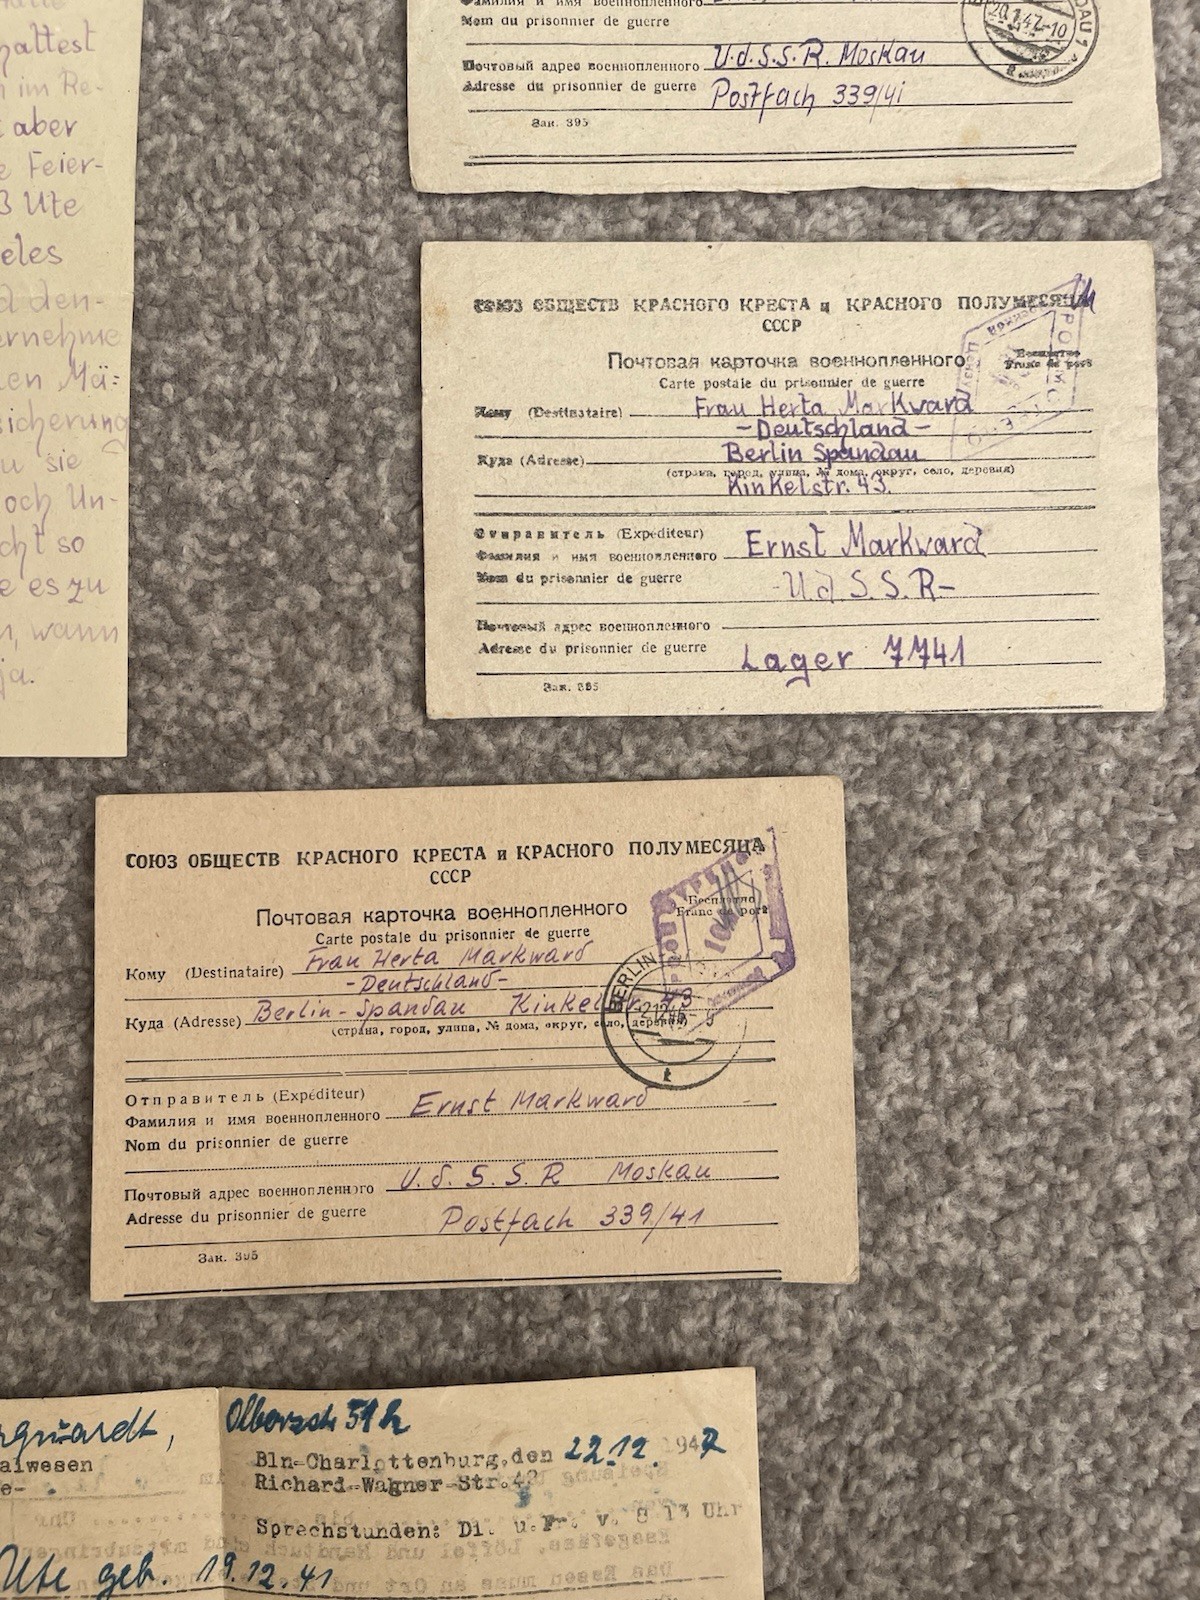 hattest
im Re-
aber
Feier-
Ute
eles
den-
ernehme
len Mä:
sicherung
u sie
och Un-
cht so
e es zu
n, wann
ja.
Фамилия и имя военнопленного
Nom du prisonnier de guerre
Почтовый адрес военнопленного U.d.S.S.R. Moskau
Adresse du prisonnier de guerre Postfach 339/41
Зак. 395
20.1.47-10
СОЮЗ ОБЩЕСТВ КРАСНОГО КРЕСТА и КРАСНОГО ПОЛУМЕСЯЦА
СССР
Почтовая карточка военнопленного
Бесплатно
Franc de port
Carte postale du prisonnier de guerre
Кому (Destinataire) Frau Herta Markward
-Deutschland-
Куда (Adresse) Berlin Spandau
(страна, город, улица, № дома, округ, село, деревня)
Kinkelstr. 43.
Отправитель (Expéditeur)
Фамилия и имя военнопленного Ernst Markward
Nom du prisonnier de guerre
-U d S.S.R-
Почтовый адрес военнопленного
Adresse du prisonnier de guerre Lager 7741
Зак. 395
СОЮЗ ОБЩЕСТВ КРАСНОГО КРЕСТА и КРАСНОГО ПОЛУМЕСЯЦА
СССР
Почтовая карточка военнопленного
Бесплатно
Franc de port
Carte postale du prisonnier de guerre
Кому (Destinataire) Frau Herta Markward
-Deutschland-
Куда (Adresse) Berlin-Spandau Kinkelstr. 43
(страна, город, улица, № дома, округ, село, деревня)
BERLIN
Отправитель (Expéditeur)
Фамилия и имя военнопленного Ernst Markward
Nom du prisonnier de guerre
Почтовый адрес военнопленного U.d.S.S.R Moskau
Adresse du prisonnier de guerre Postfach 339/41
Зак. 395
rquardt,
alwesen
Bln-Charlottenburg,den 22.12. 1947
Richard-Wagner-Str.42
Sprechstunden: Di. u.Fr. v. 8 13 Uhr
Ute geb. 19.12.41